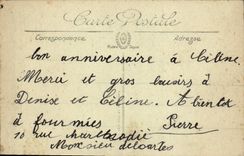 Carte Postale
Correspondance
Adresse
bon anniversaire à Céline.
Merci et gros baisers à
Denise et Céline. A bientot
à fourmies Pierre
10 rue
Monsieur